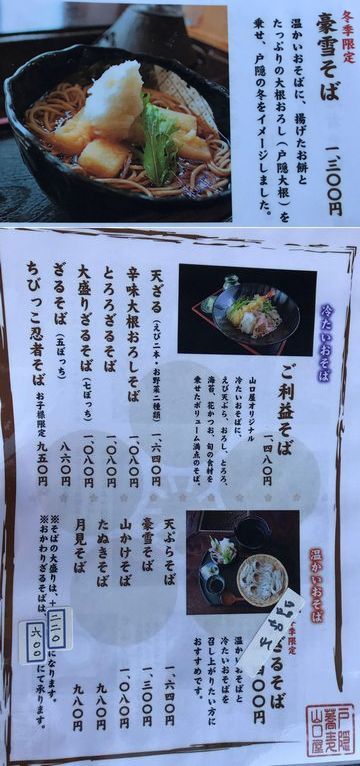 冬季限定
豪雪そば
一、三〇〇円
温かいおそばに、揚げたお餅と
たっぷりの大根おろし(戸隠大根)を
乗せ、戸隠の冬をイメージしました。
冷たいおそば
ご利益そば
一、四八〇円
山口屋オリジナル
冷たいおそばに、
えび天ぷら、おろし、とろろ、
海苔、花かつお、旬の食材を
乗せたボリューム満点のそば。
天ざる(えび二本・お野菜二種類)
一、六四〇円
辛味大根おろしそば
一、〇八〇円
とろろざるそば
一、〇八〇円
大盛りざるそば(七ぼっち)
一、〇八〇円
ざるそば(五ぼっち)
八六〇円
ちびっこ忍者そば お子様限定
九五〇円
温かいおそば
季限定
ざるそば
〇〇円
温かいおそばと
冷たいおそばを
召し上がりたい方に
おすすめです。
天ぷらそば
一、六四〇円
豪雪そば
一、三〇〇円
山かけそば
一、〇八〇円
たぬきそば
九八〇円
月見そば
九八〇円
※そばの大盛りは、+二二〇になります。
※おかわりざるそばは、六〇〇にて承ります。
戸隠
蕎麦
山口屋